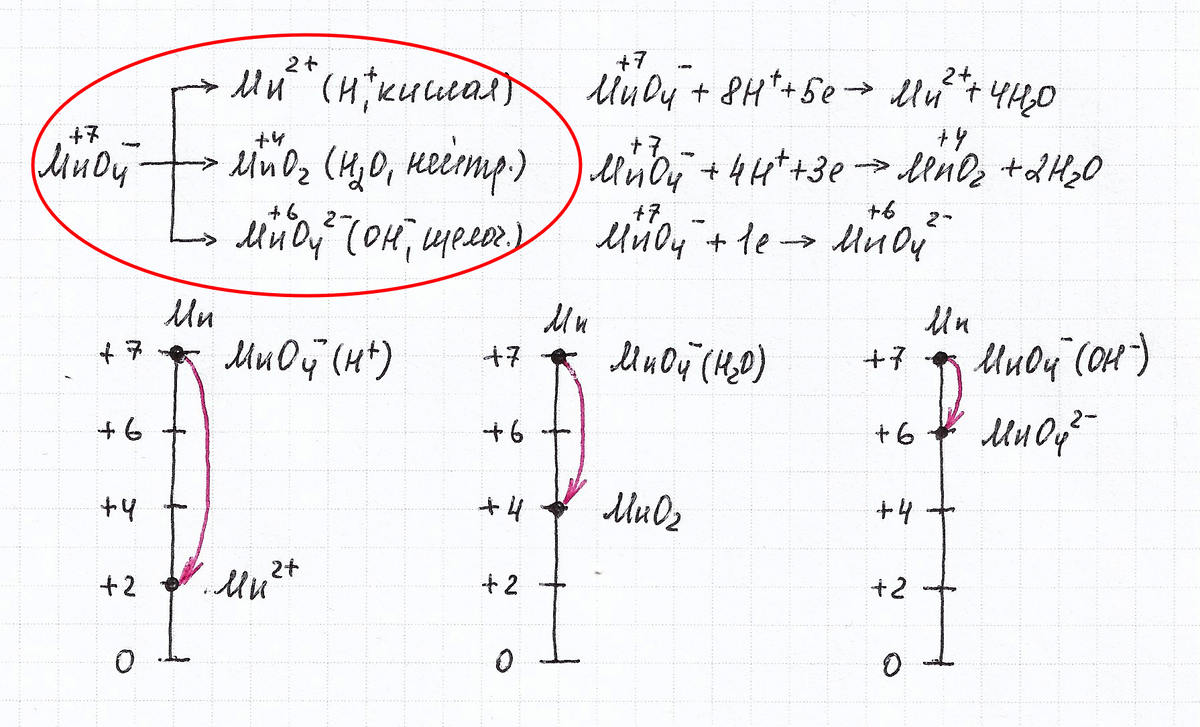 Mn²⁺ (H⁺, кислая)
+7 MnO₄⁻ +4 MnO₂ (H₂O, нейтр.)
+6 MnO₄²⁻ (OH⁻, щелоч.)
+7 MnO₄⁻ + 8H⁺ + 5e → Mn²⁺ + 4H₂O
+7 MnO₄⁻ + 4H⁺ + 3e → +4 MnO₂ + 2H₂O
+7 MnO₄⁻ + 1e → +6 MnO₄²⁻
Mn
+7 MnO₄⁻ (H⁺)
+6
+4
+2 Mn²⁺
0
Mn
+7 MnO₄⁻ (H₂O)
+6
+4 MnO₂
+2
0
Mn
+7 MnO₄⁻ (OH⁻)
+6 MnO₄²⁻
+4
+2
0